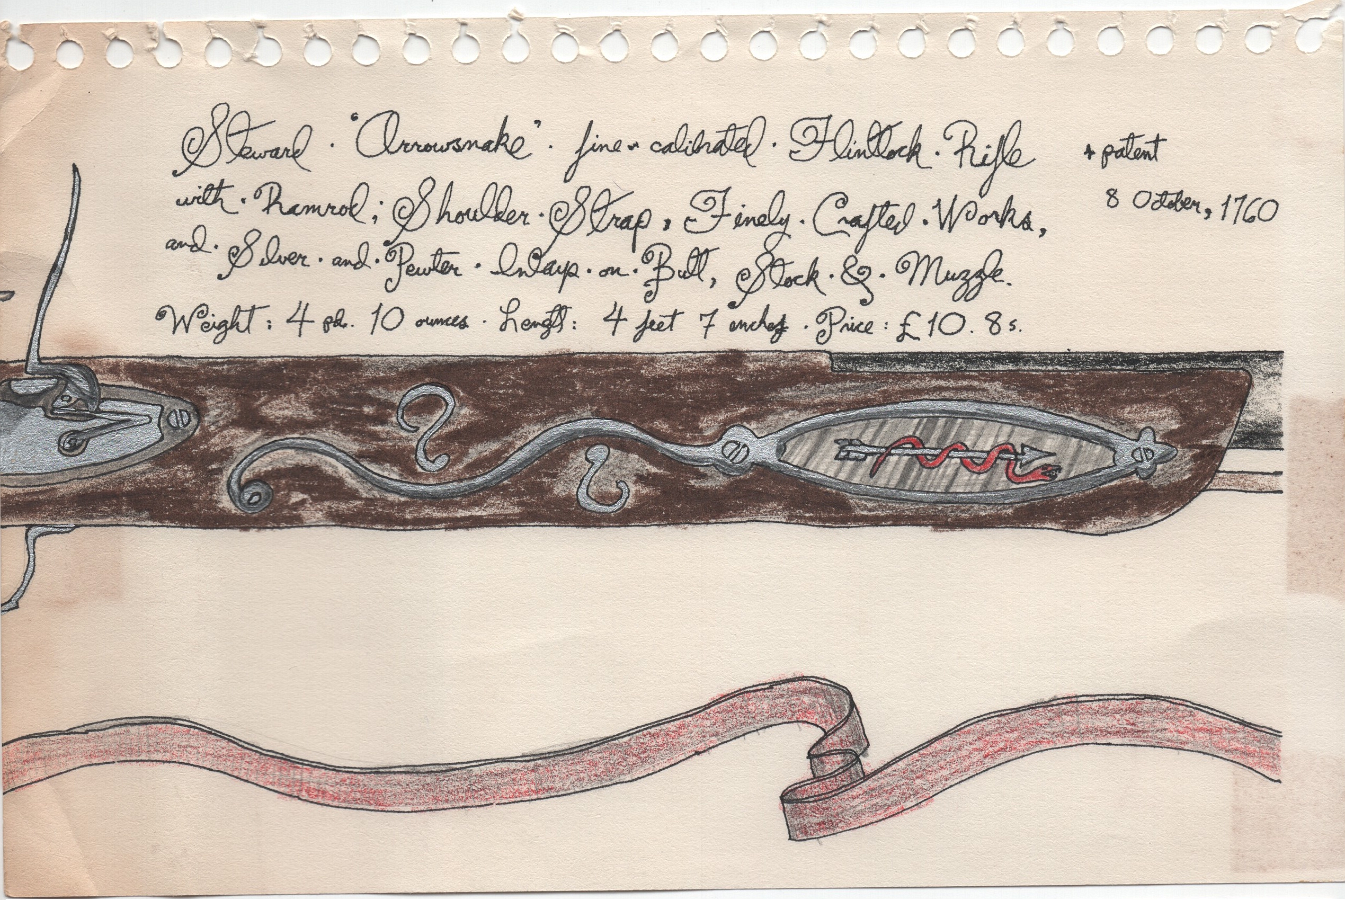 Steward · "Arrowsnake" · fine · calibrated · Flintlock · Rifle
with · Ramrod; Shoulder · Strap, Finely · Crafted · Works,
and · Silver · and · Pewter · Inlays · on · Butt, Stock · & · Muzzle.
Weight: 4 pd. 10 ounces · Length: 4 feet 7 inches · Price: £10. 8s.
+ patent
8 October, 1760